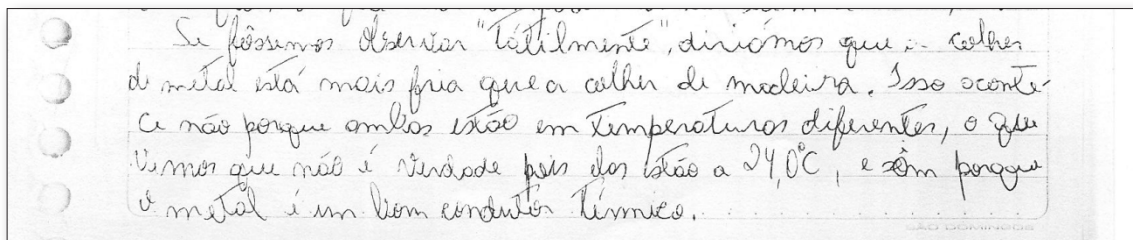 Se fôssemos observar "tátilmente", diriámos que a colher
de metal está mais fria que a colher de madeira. Isso aconte-
ce não porque ambas estão em temperaturas diferentes, o que
vimos que não é verdade pois elas estão a 24,0°C, e sim porque
o metal é um bom condutor térmico.
SÃO DOMINGOS